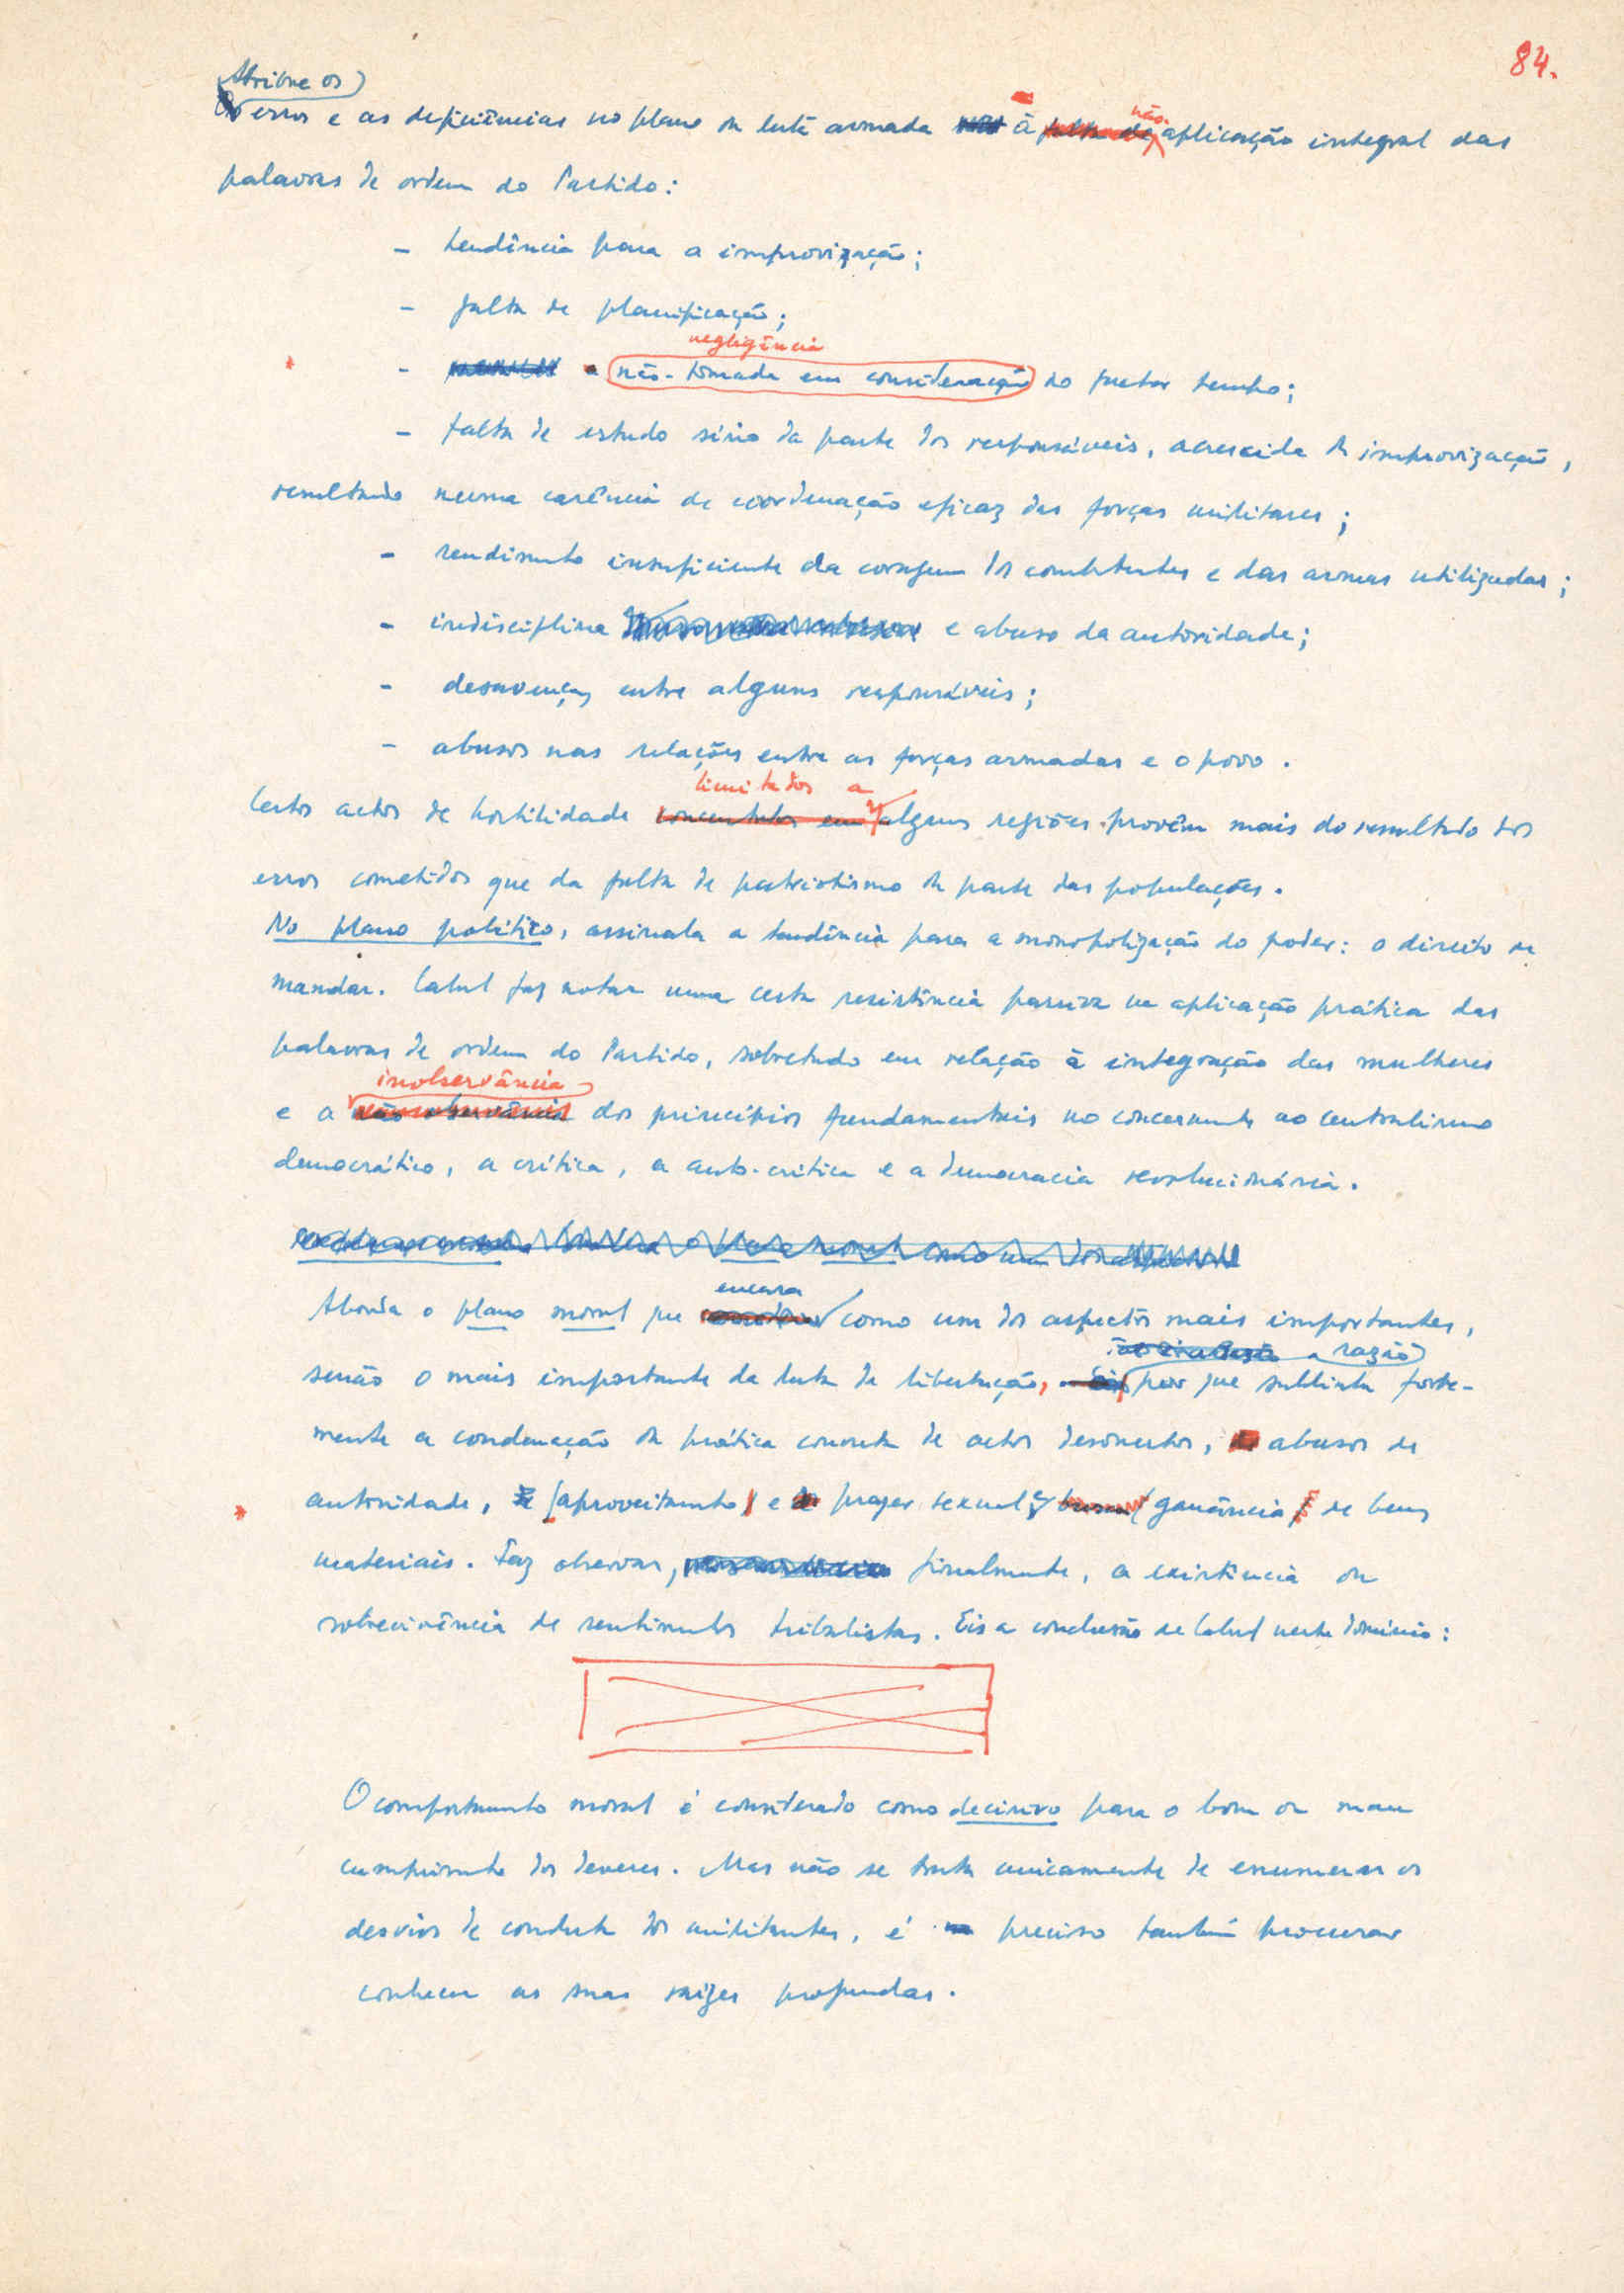 84.
Atribue os
erros e as deficiências no plano da luta armada à não aplicação integral das
palavras de ordem do Partido:
- tendência para a improvização;
- falta de planificação;
negligência
* - a não-tomada em consideração do factor tempo;
- falta de estudo sério da parte dos responsáveis, acrescida da improvização,
resultando numa carência de coordenação eficaz das forças militares;
- rendimento insuficiente da coragem dos combatentes e das armas utilizadas;
- indisciplina e abuso da autoridade;
- desavenças entre alguns responsáveis;
- abusos nas relações entre as forças armadas e o povo.
limitados a
Certos actos de hostilidade concentrados em algumas regiões provêm mais do resultado dos
erros cometidos que da falta de patriotismo da parte das populações.
No plano político, assinala a tendência para a monopolização do poder: o direito de
mandar. Cabral faz notar uma certa resistência passiva na aplicação prática das
palavras de ordem do Partido, sobretudo em relação à integração das mulheres
inobservância
e a não observância dos princípios fundamentais no concernente ao centralismo
democrático, a crítica, a auto-crítica e a democracia revolucionária.
encara
Aborda o plano moral que como um dos aspectos mais importantes,
a razão
senão o mais importante da luta de libertação, por que sublinha forte-
mente a condenação da prática concreta de actos desonestos, abusos de
* autoridade, (aproveitamento) e prazer sexual e (ganância) de bens
materiais. Faz observar, finalmente, a existência ou
sobrevivência de sentimentos tribalistas. Eis a conclusão de Cabral neste domínio:
O comportamento moral é considerado como decisivo para o bom ou mau
cumprimento dos deveres. Mas não se trata unicamente de enumerar os
desvios de conduta dos militantes, é preciso também procurar
conhecer as suas raízes profundas.